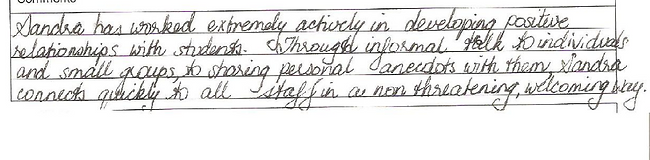 Comments
Sandra has worked extremely actively in developing positive
relationships with students. Through informal talk to individuals
and small groups, to sharing personal anecdots with them, Sandra
connects quickly to all staff in a non threatening, welcoming way.